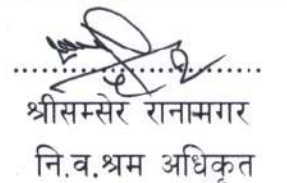 श्रीसम्सेर रानामगर
नि.व.श्रम अधिकृत